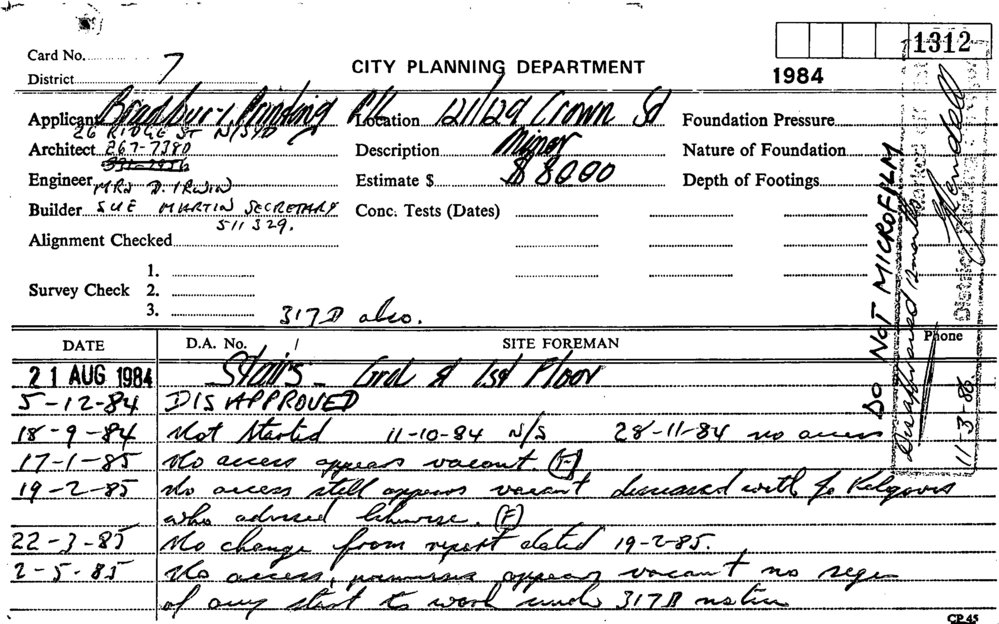 1312
1984
Card No.
District 7
CITY PLANNING DEPARTMENT
Applicant Bradbury Printing P/L
26 RIDGE ST N/SYD
Location 121/129 Crown St
Foundation Pressure
Architect 267-7380
Description Minor
Nature of Foundation
Engineer MRS D. IRWIN
Estimate $ $ 8000
Depth of Footings
Builder SUE MARTIN SECRETARY
511329.
Conc. Tests (Dates)
Alignment Checked
Survey Check
1.
2.
3.
317B also.
DO NOT MICROFILM
Disapproved
11-3-86.
DATE D.A. No. SITE FOREMAN Phone
21 AUG 1984 Stairs - Grd & 1st Floor
5-12-84 DISAPPROVED
18-9-84 Not Started 11-10-84 N/S 28-11-84 no access
17-1-85 No access appears vacant. (F)
19-2-85 No access still appears vacant discussed with Jo
who advised likewise. (F)
22-3-85 No change from report dated 19-2-85.
2-5-85 No access, premises appears vacant no sign
of any start to work under 317B notice
CP.45